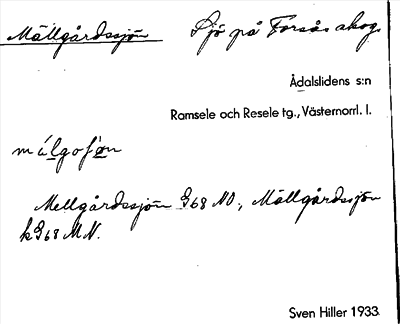 Mällgårdssjön Sjö på Forsås skog.
Ådalslidens s:n
Ramsele och Resele tg., Västernorrl. l.
málgoʃøn
Mellgårdssjön G68 NO, Mällgårdssjön
k G68 M N.
Sven Hiller 1933.